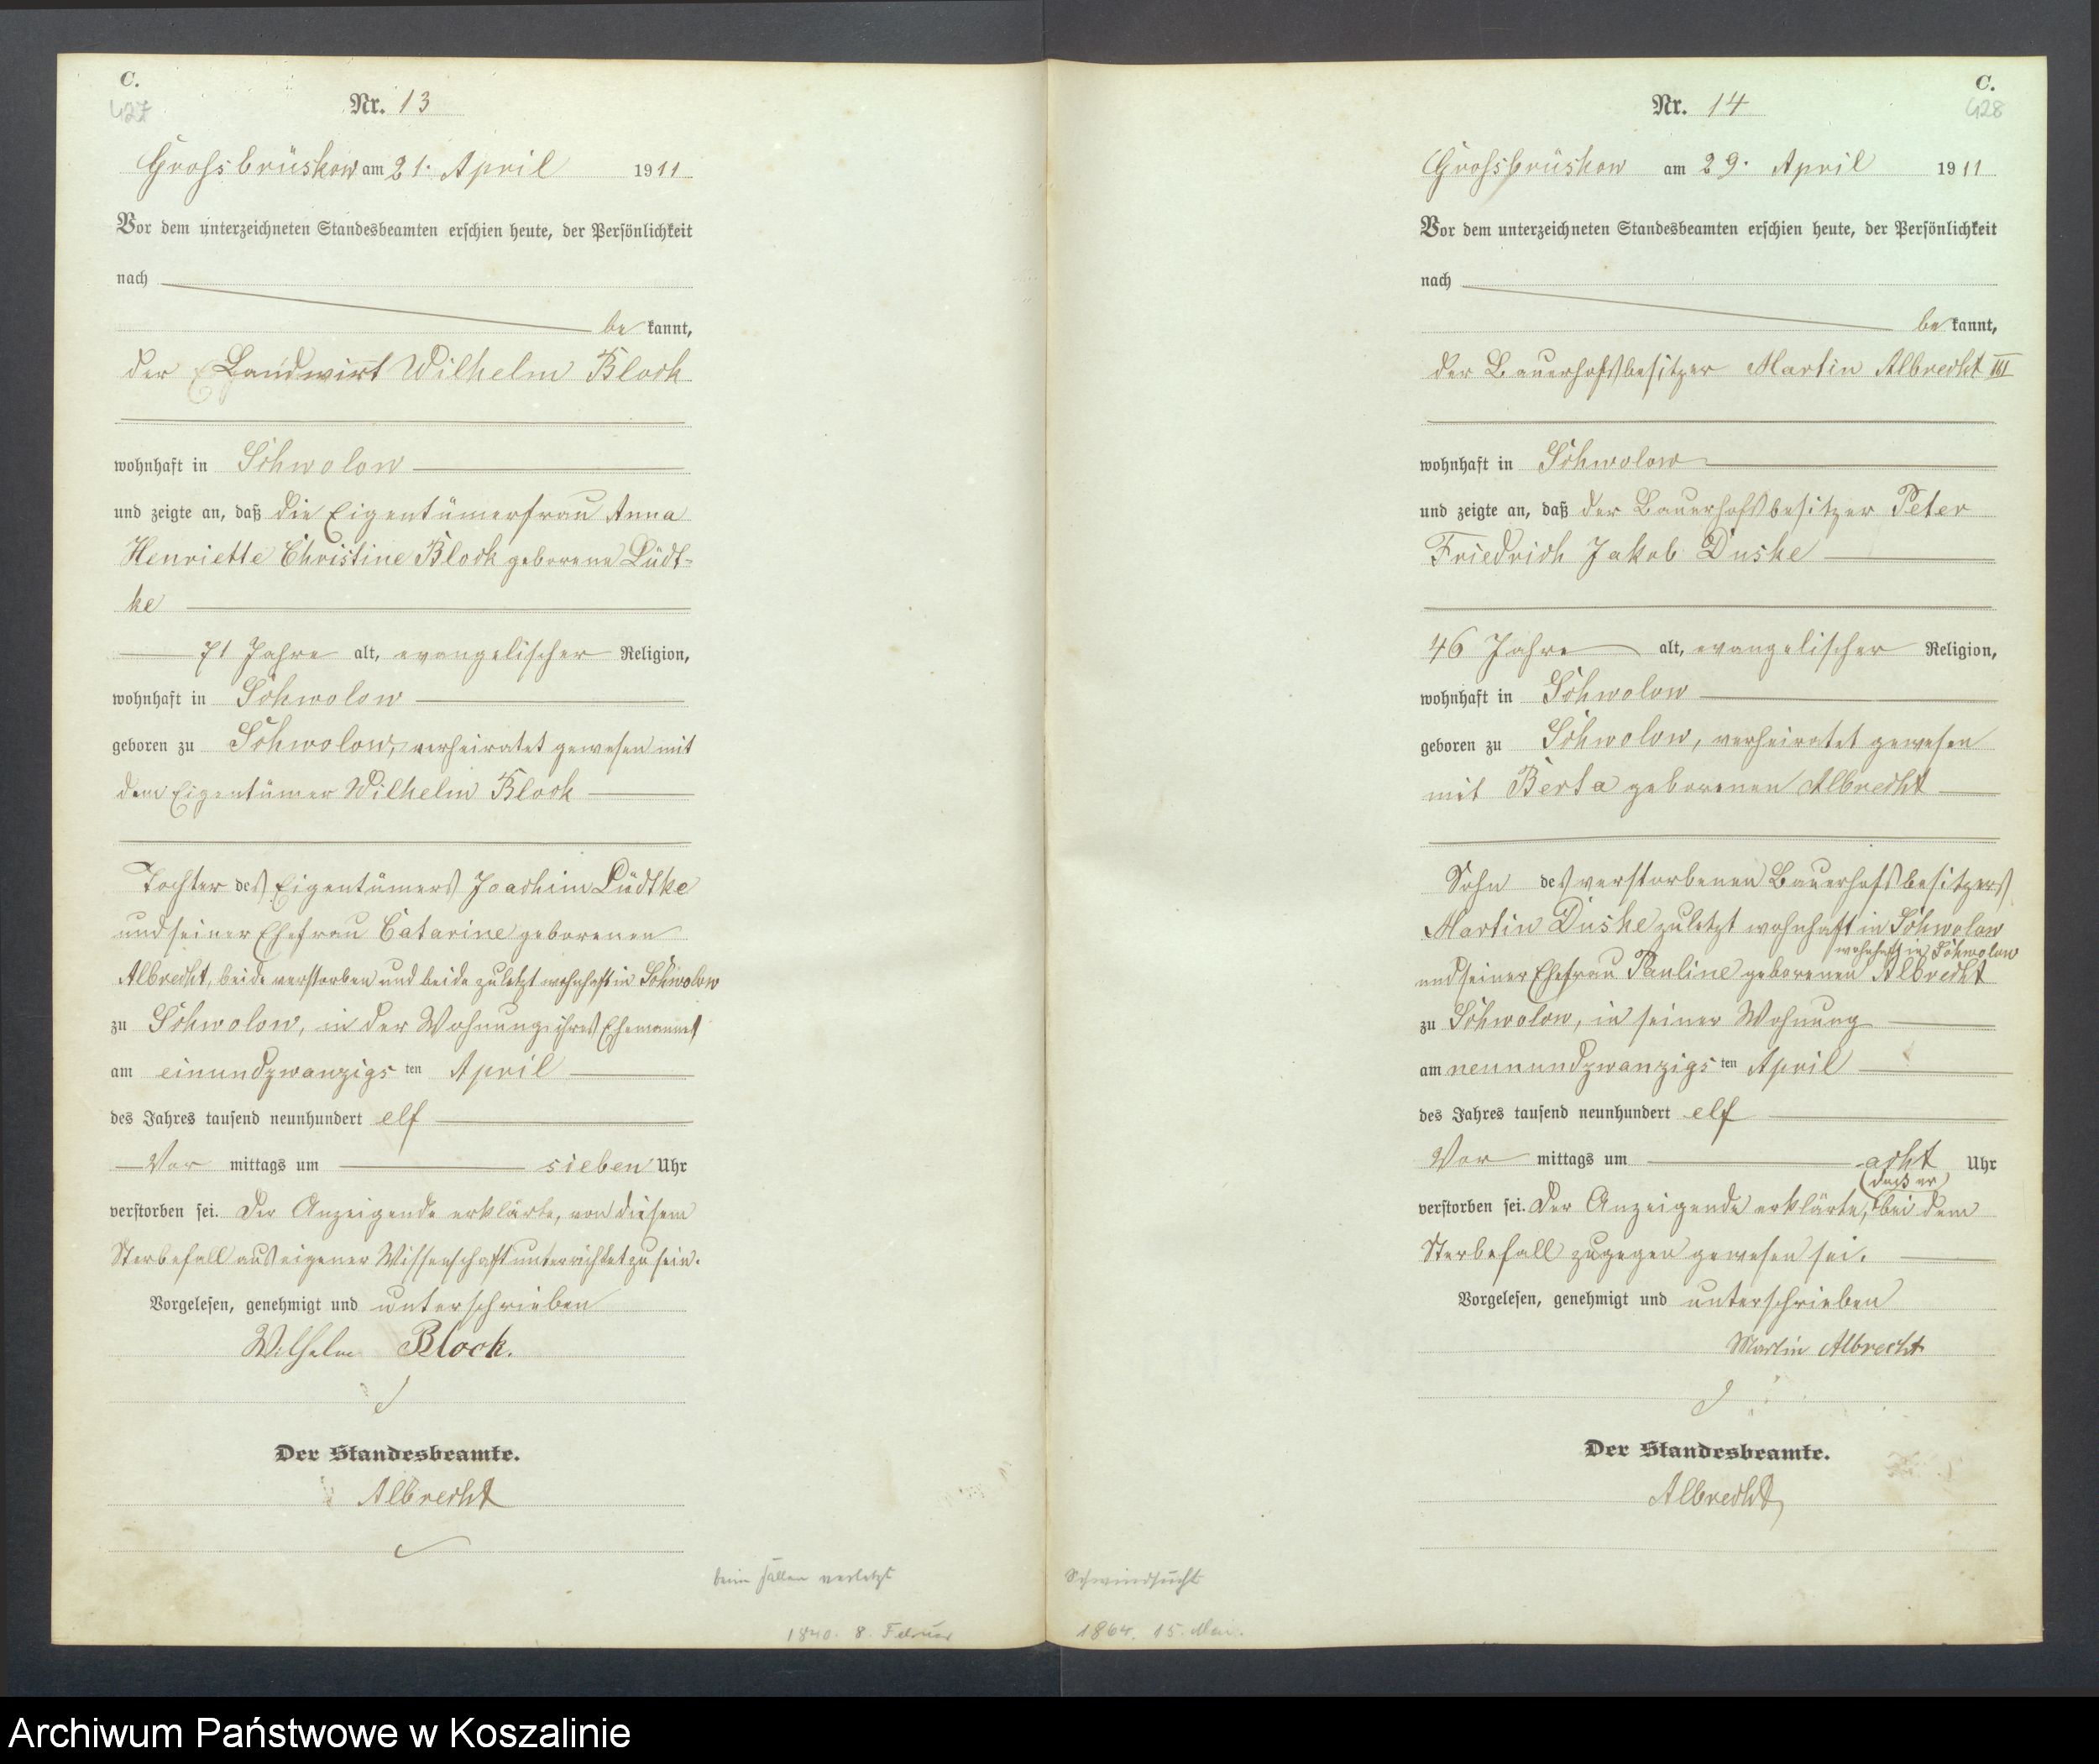 C.
427
Nr. 13
Grossbrüskow am 21. April 1911
Vor dem unterzeichneten Standesbeamten erschien heute, der Persönlichkeit
nach
be kannt,
der Landwirt Wilhelm Block
wohnhaft in Schwolow
und zeigte an, daß die Eigentümerfrau Anna
Henriette Christine Block geborene Lüdt-
ke
71 Jahre alt, evangelischer Religion,
wohnhaft in Schwolow
geboren zu Schwolow, verheiratet gewesen mit
dem Eigentümer Wilhelm Block
Tochter des Eigentümers Joachim Lüdtke
und seiner Ehefrau Catarine geborenen
Albrecht, beide verstorben und beide zuletzt wohnhaft in Schwolow
zu Schwolow, in der Wohnung ihres Ehemannes
am einundzwanzigs ten April
des Jahres tausend neunhundert elf
Vor mittags um sieben Uhr
verstorben sei. Der Anzeigende erklärte, von diesem
Sterbefall aus eigener Wissenschaft unterrichtet zu sein.
Vorgelesen, genehmigt und unterschrieben
Wilhelm Block.
Der Standesbeamte.
Albrecht
beim fallen verletzt
1840. 8. Februar
C.
428
Nr. 14
Grossbrüskow am 29. April 1911
Vor dem unterzeichneten Standesbeamten erschien heute, der Persönlichkeit
nach
be kannt,
der Bauerhofsbesitzer Martin Albrecht III
wohnhaft in Schwolow
und zeigte an, daß der Bauerhofsbesitzer Peter
Friedrich Jakob Duske
46 Jahre alt, evangelischer Religion,
wohnhaft in Schwolow
geboren zu Schwolow, verheiratet gewesen
mit Berta geborenen Albrecht
Sohn des verstorbenen Bauerhofsbesitzers
Martin Duske zuletzt wohnhaft in Schwolow
wohnhaft in Schwolow
und seiner Ehefrau Pauline geborenen Albrecht
zu Schwolow, in seiner Wohnung
am neunundzwanzigs ten April
des Jahres tausend neunhundert elf
Vor mittags um acht Uhr
(dass er)
verstorben sei. Der Anzeigende erklärte, bei dem
Sterbefall zugegen gewesen sei.
Vorgelesen, genehmigt und unterschrieben
Martin Albrecht
Der Standesbeamte.
Albrecht
Schwindsucht
1864. 15. Mai.
Archiwum Państwowe w Koszalinie